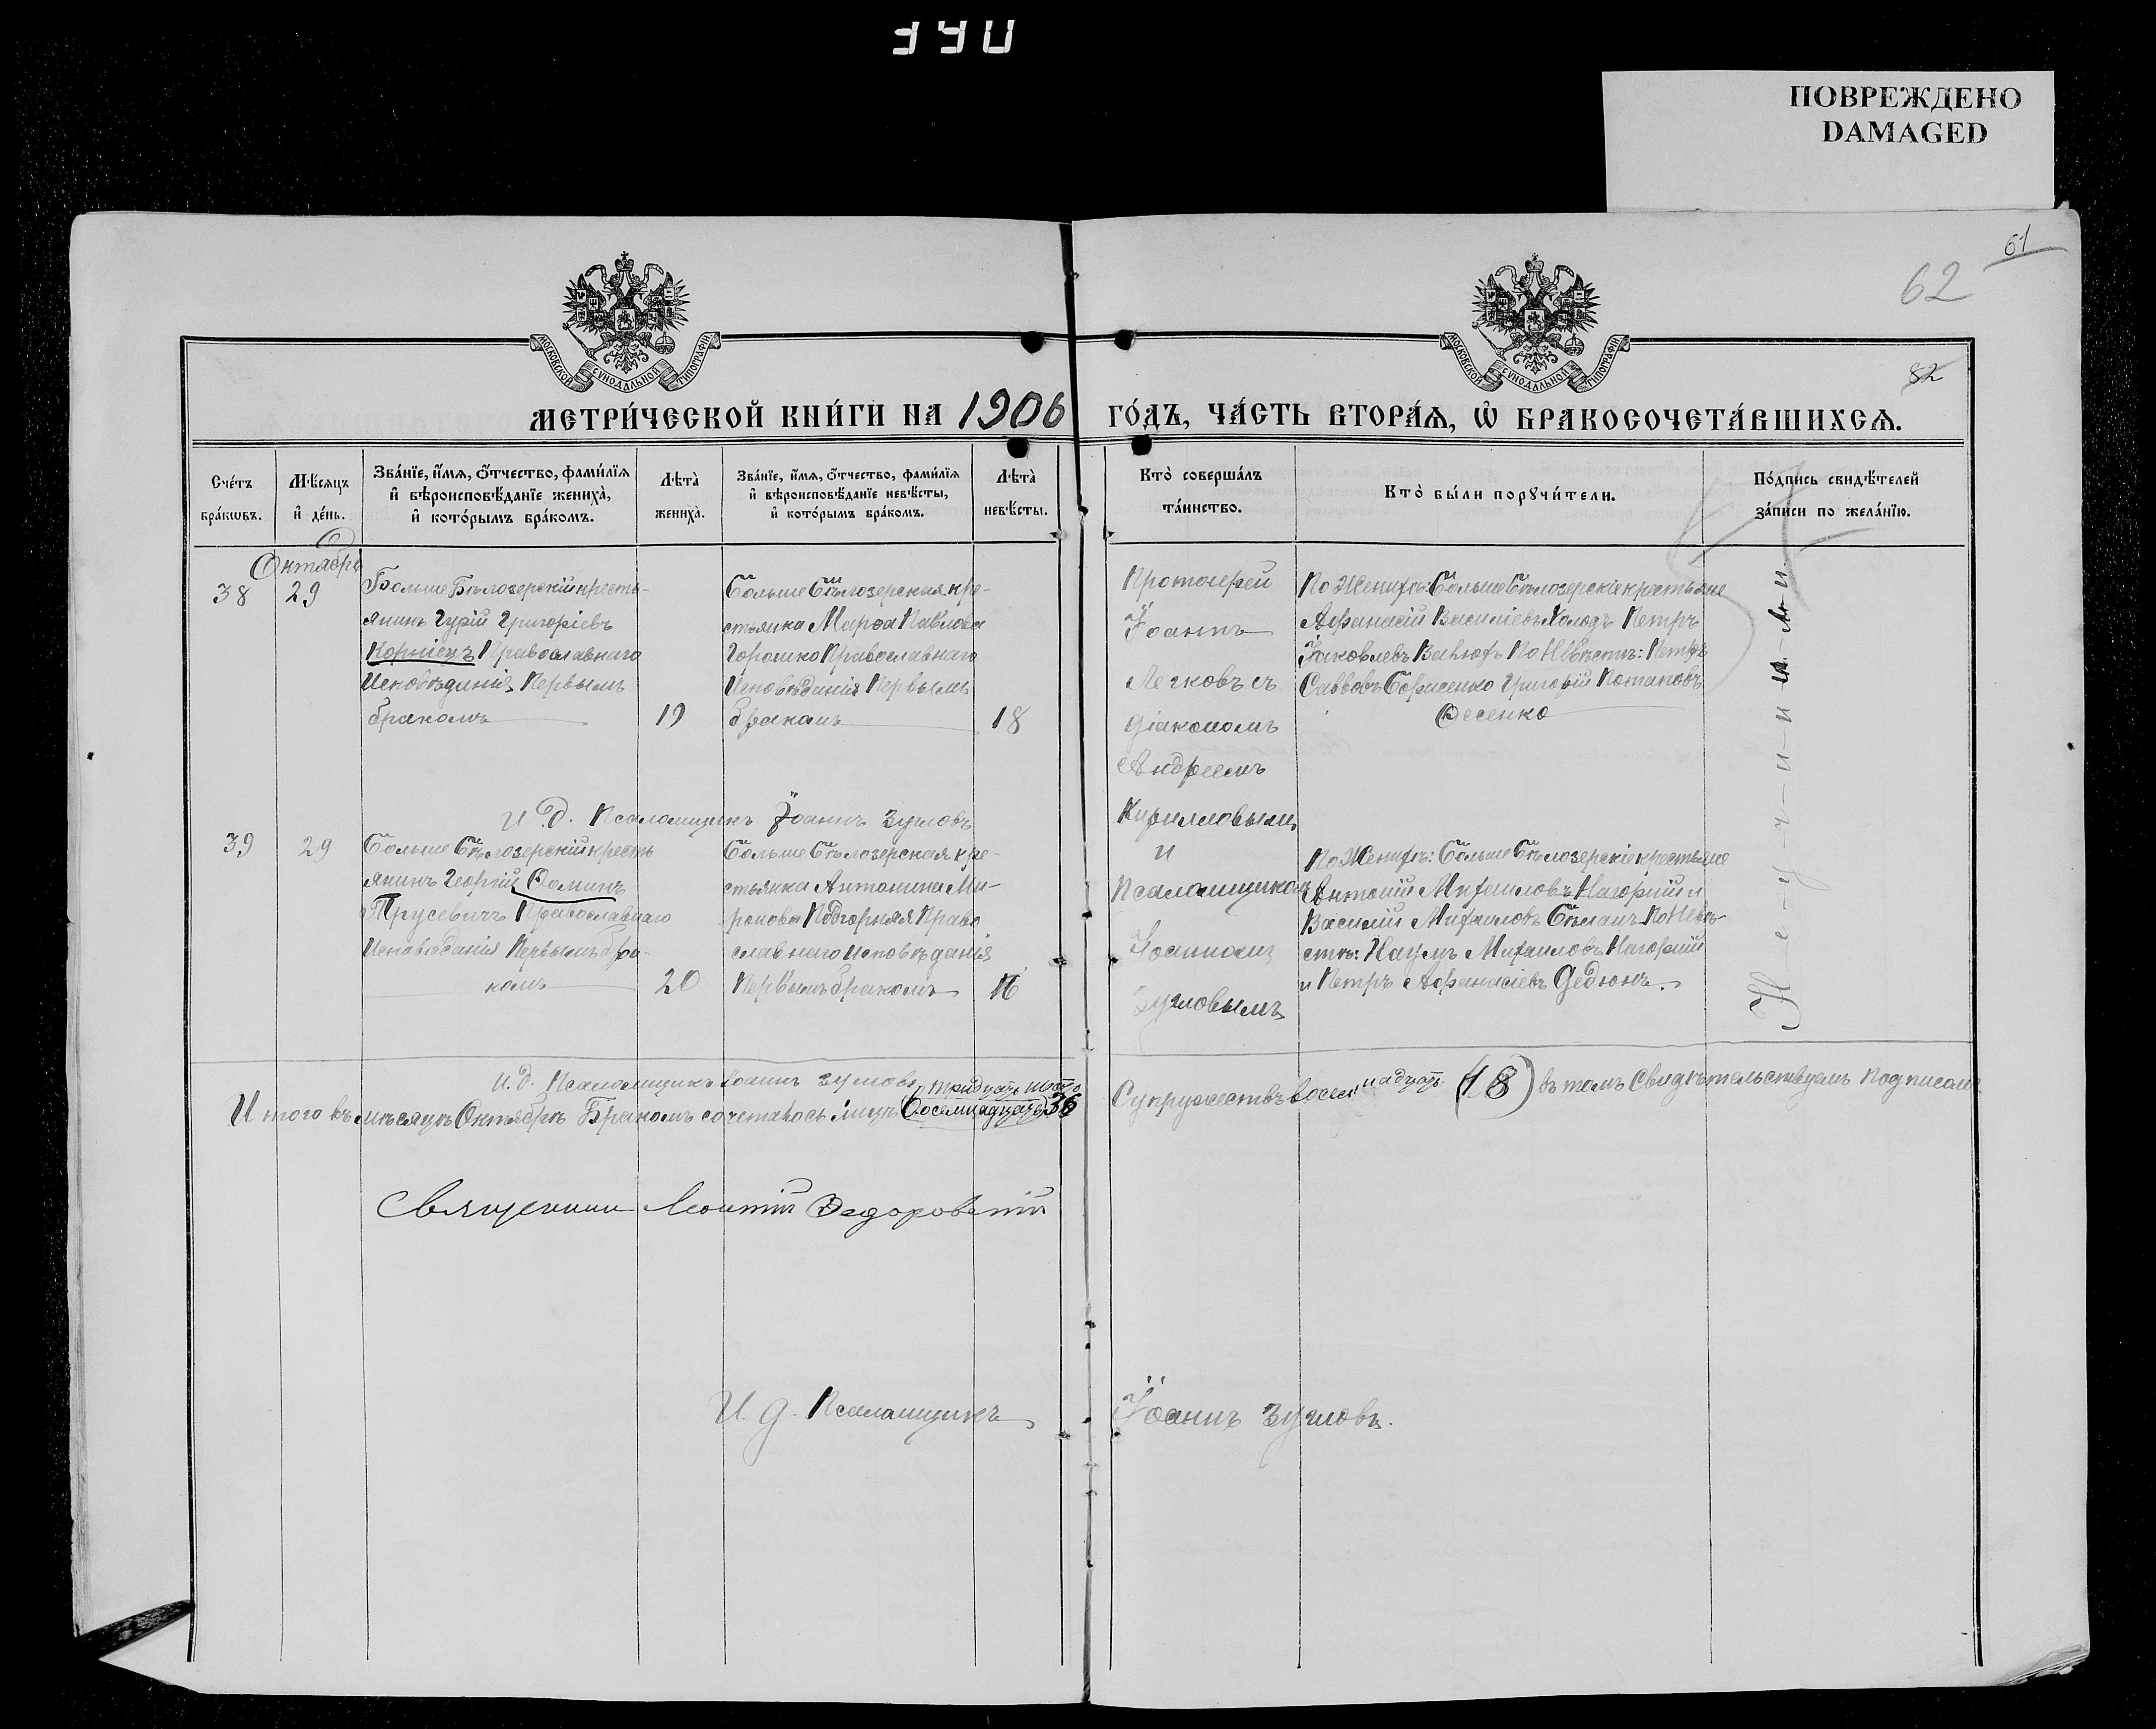 340
ПОВРЕЖДЕНО
DAMAGED
61
62
82
МОСКОВСКОЙ СѴНОДАЛЬНОЙ ТИПОГРАФІИ
МОСКОВСКОЙ СѴНОДАЛЬНОЙ ТИПОГРАФІИ
МЕТРИ́ЧЕСКОЙ КНИ́ГИ НА 1906 ГО́ДЪ, ЧА́СТЬ ВТОРА́Ѧ, Ѡ҆ БРАКОСОЧЕТА́ВШИХСѦ.
Сче́тъ
бра́кѡвъ.
Мѣ́сѧцъ
и҆ де́нь.
Зва́нїе, и҆́мѧ, ѻ҆́тчество, фами́лїѧ
и҆ вѣроисповѣ́данїе жениха̀,
и҆ кото́рымъ бра́комъ.
Лѣта̀
жениха̀.
Зва́нїе, и҆́мѧ, ѻ҆́тчество, фами́лїѧ
и҆ вѣроисповѣ́данїе невѣ́сты,
и҆ кото́рымъ бра́комъ.
Лѣта̀
невѣ́сты.
Кто̀ соверша́лъ
та́инство.
Кто̀ бы́ли порꙋчи́тели.
По́дпись свидѣ́телей
за́писи по жела́нїю.
Октябрь
38
29
Больше Бѣлозерскій кресть-
янинъ Гурій Григоріевъ
Корніецъ Православнаго
Исповѣданія, Первымъ
бракомъ
19
Больше Бѣлозерская кре-
стьянка Марѳа Павлова
Горошко Православнаго
Исповѣданія Первымъ
бракомъ
18
Протоіерей
Іоаннъ
Легковъ съ
діакономъ
Андреемъ
Кирилловымъ
и
Псаломщикомъ
Іоанномъ
Зугловымъ
По Женихѣ: Больше Бѣлозерскіе крестьяне
Афанасій Василіевъ Холодъ Петръ
Іаковлевъ По Невѣстѣ: Петръ
Саввовъ Борисенко Григорій Потаповъ
Фесенко
И. д. Псаломщикъ Іоаннъ Зугловъ
39
29
Больше Бѣлозерскій кресть
янинъ Георгій Ѳоминъ
Трусевичъ Православнаго
Исповѣданія Первымъ бра-
комъ
20
Больше Бѣлозерская кре-
стьянка Антонина Ми-
ронова Подгорняя Право
славнаго исповѣданія
Первымъ бракомъ
16
По Женихѣ: Больше Бѣлозерскіе крестьяне
Антоній Михаиловъ Нагорній и
Василій Михаиловъ По Невѣ-
стѣ: Наумъ Михаиловъ Нагорній
и Петръ Афанасіевъ Дедюнъ.
И. д. Псаломщикъ Іоаннъ Зугловъ
тридцать шесть
Итого въ мѣсяцѣ Октябрѣ Бракомъ сочеталось лицъ (Восемнадцать) 36
Супружествъ восемнадцать (18) въ томъ Свидѣтельствуемъ Подписомъ
Священникъ Леонтій Федоровскій
И. д. Псаломщикъ Іоаннъ Зугловъ.